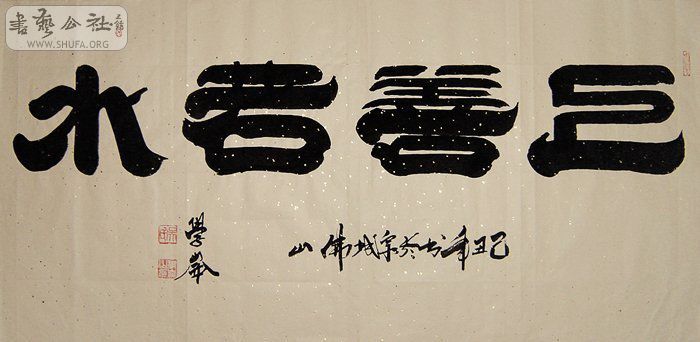 書藝公社
WWW.SHUFA.ORG
上善若水
己丑年书於城佛山
學峯